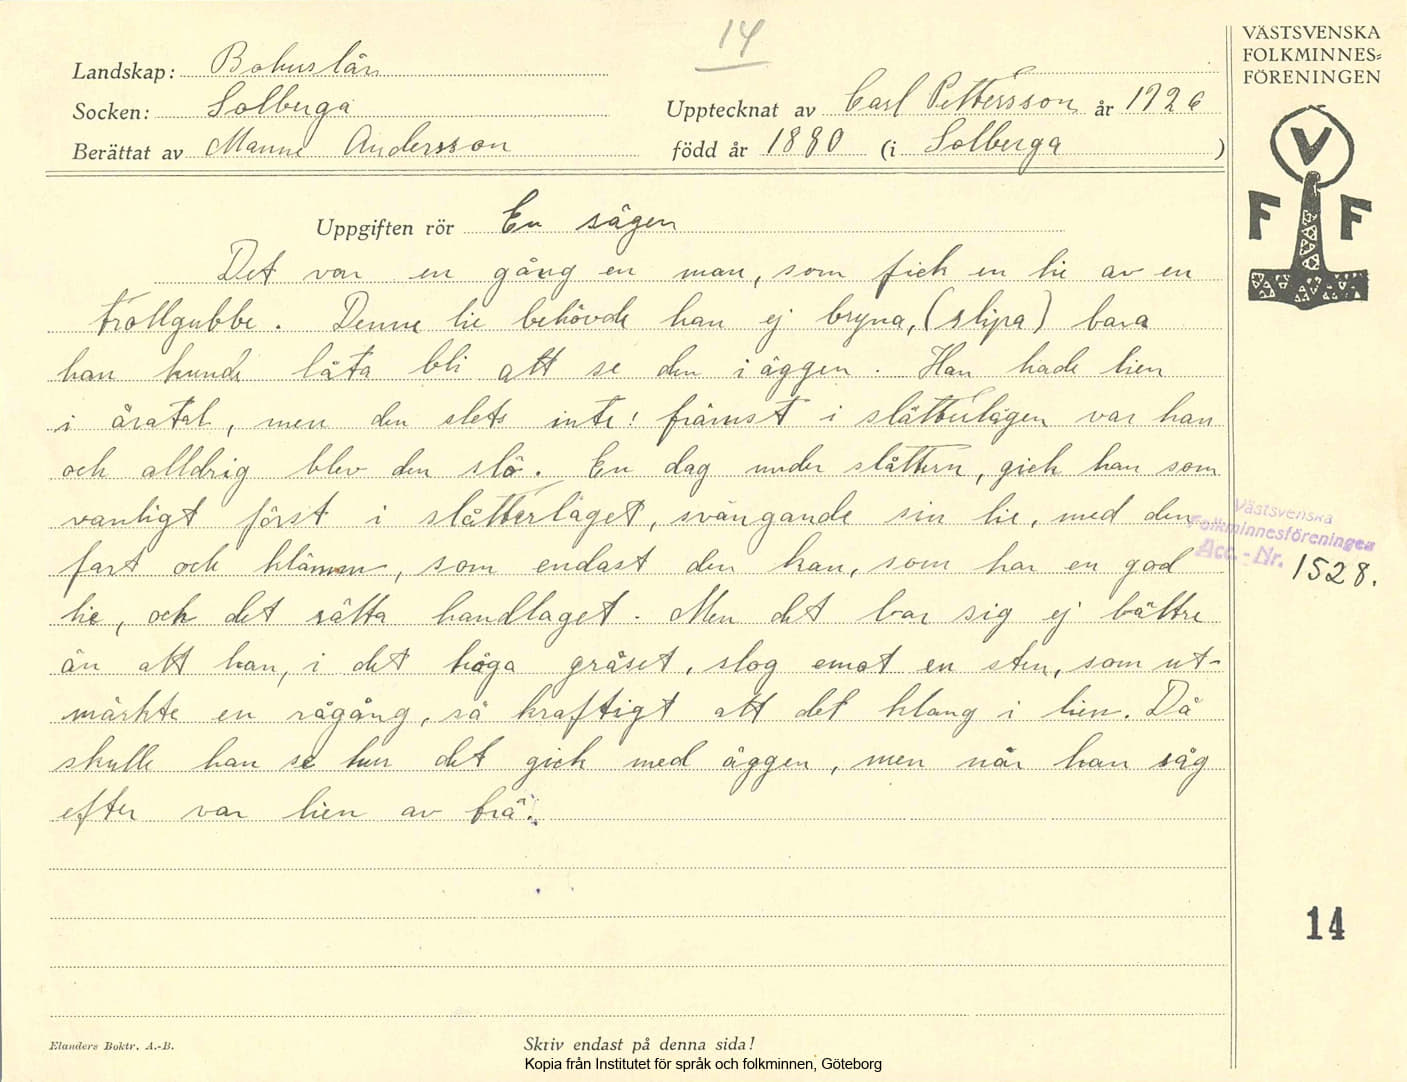 14
VÄSTSVENSKA
FOLKMINNES-
FÖRENINGEN
Landskap: Bohuslän
Socken: Solberga
Upptecknat av Carl Pettersson år 1926
Berättat av Manne Andersson
född år 1880 (i Solberga )
V
F F
Uppgiften rör En sägen
Det var en gång en man, som fick en lie av en
trollgubbe. Denne lie behövde han ej bryna, (slipa) bara
han kunde låta bli att se den i äggen. Han hade lien
i åratal, men den slets inte! främst i slåtterlagen var han
och alldrig blev den slö. En dag under slåttern, gick han som
vanligt först i slåtterlaget, svängande sin lie, med den
fart och klämm, som endast den kan, som har en god
lie, och det rätta handlaget. Men det bar sig ej bättre
än att han, i det höga gräset, slog emot en sten, som ut-
märkte en rågång, så kraftigt att det klang i lien. Då
skulle han se hur det gick med äggen, men när han såg
efter var lien av trä.
Västsvenska
Folkminnesföreningen
Acc.-Nr. 1528.
14
Elanders Boktr. A.-B.
Skriv endast på denna sida!
Kopia från Institutet för språk och folkminnen, Göteborg